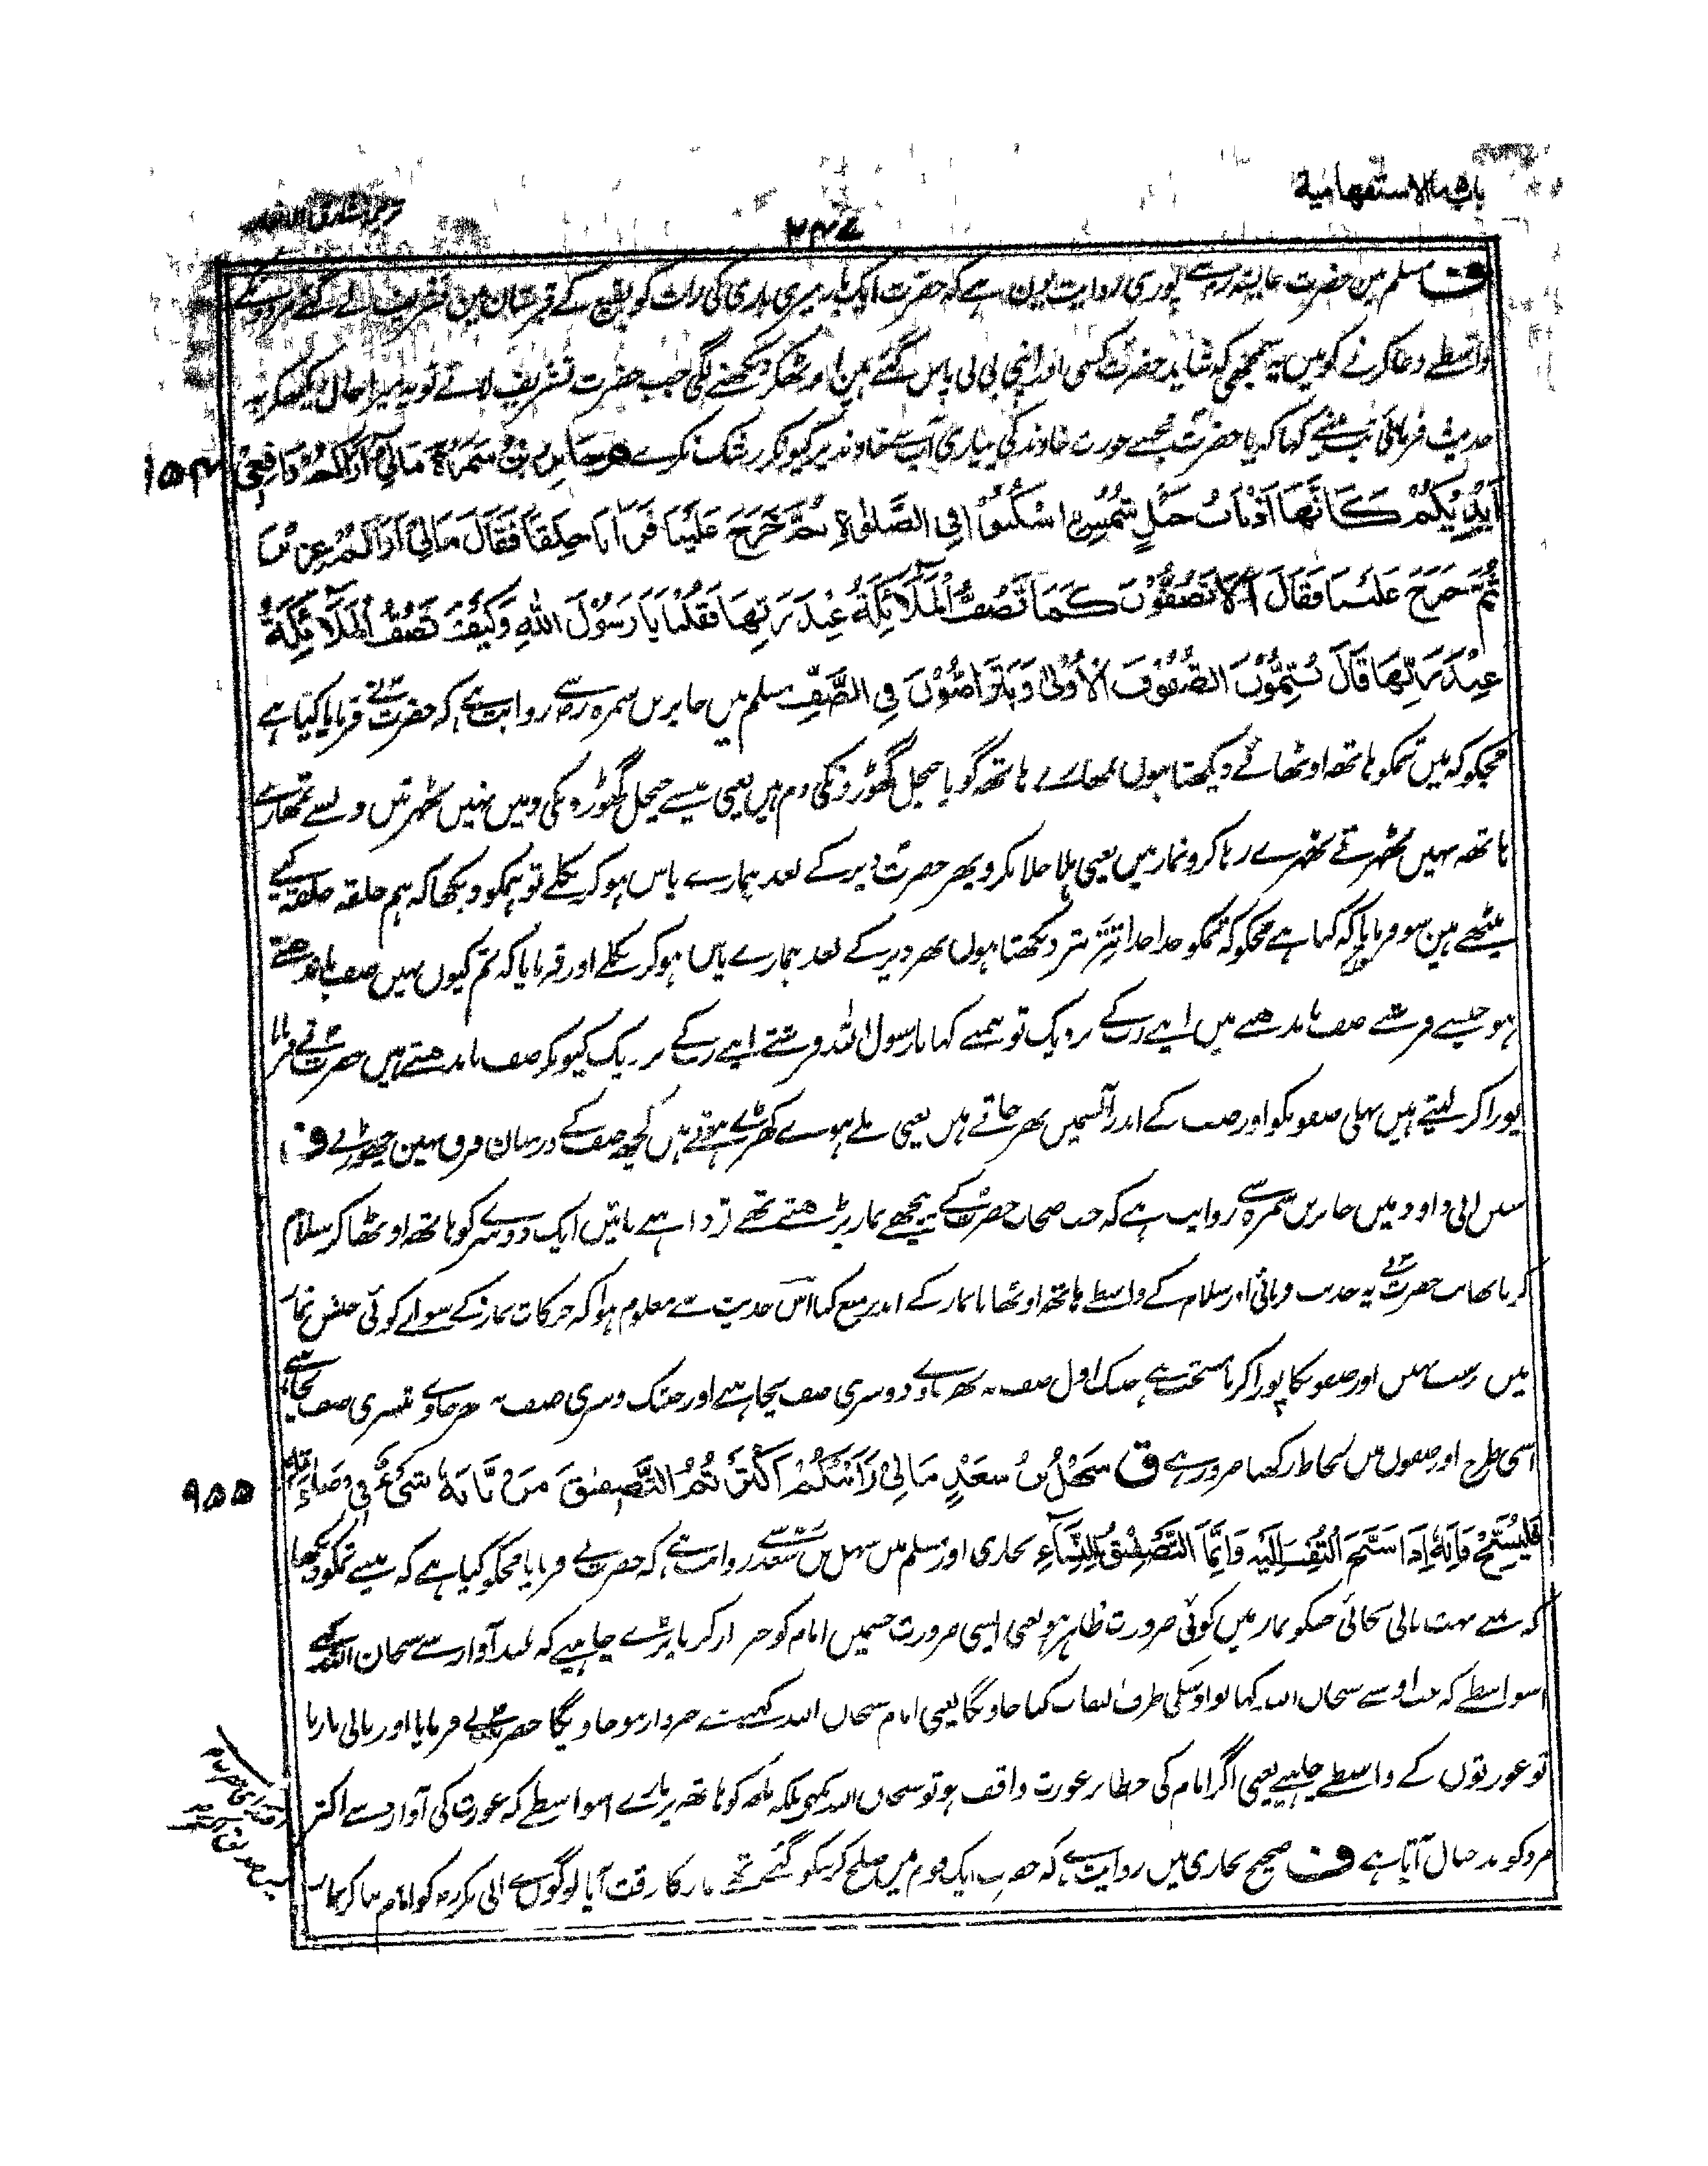 باب ما الاستفهامية
۲۴۷
ف مسلم مین حضرت عایشہ رض سے پوری روایت یون ہے کہ حضرت ایک بار میری باری کی رات کو بقیع کے قبرستان مین تشریف لے گئے مردونکے
واسطے دعا کرنے کو میں یہ سمجھی کہ شاید حضرت کسی اور اپنی بی بی پاس گئے ہین اوٹھکر دیکھنے لگی جب حضرت تشریف لائے تو یہ میرا حال دیکھکر یہ
حدیث فرمائی تب مینے کہا کہ یا حضرت مجھسے عورت خاوند کی پیاری آپ سے خاوند پر کیونکر رشک نکرے م جابر بن سمرة مالي أراكم رافعي
۱۵۴
أَيْدِيكُمْ كَأَنَّهَا أَذْنَابُ خَيْلٍ شُمُسٍ اسْكُنُوْا فِي الصَّلٰوةِ ثُمَّ خَرَجَ عَلَيْنَا فَرَاٰنَا حِلَقًا فَقَالَ مَالِيْ أَرَاكُمْ عِزِيْنَ
ثُمَّ خَرَجَ عَلَيْنَا فَقَالَ أَلَا تَصُفُّوْنَ كَمَا تَصُفُّ الْمَلَآئِكَةُ عِنْدَ رَبِّهَا فَقُلْنَا يَا رَسُوْلَ اللهِ وَكَيْفَ تَصُفُّ الْمَلَآئِكَةُ
عِنْدَ رَبِّهَا قَالَ يُتِمُّوْنَ الصُّفُوْفَ الْأُوْلٰى وَيَتَرَاصُّوْنَ فِي الصَّفِّ مسلم میں جابر بن سمرہ رض سے روایت ہے کہ حضرت نے فرمایا کیا ہے
مجکو کہ میں تمکو ہاتھ اوٹھائے دیکھتا ہوں تمھارے ہاتھ گویا چنچل گھوڑونکی دم ہیں یعنی جیسے چنچل گھوڑونکی دمیں نہیں ٹھہرتیں ویسے تمھارے
ہاتھ نہیں ٹھہرتے ٹھہرے رہا کرو نماز میں یعنی ہلا جلا نکرو پھر حضرت دیر کے بعد ہمارے پاس ہو کر نکلے تو ہمکو دیکھا کہ ہم حلقہ حلقہ کیے
بیٹھے ہین سو فرمایا کہ کیا ہے مجکو کہ تمکو جدا جدا تتر بتر دیکھتا ہوں پھر دیر کے بعد ہمارے پاس ہو کر نکلے اور فرمایا کہ تم کیوں نہیں صف باندھتے
ہو جیسے فرشتے صف باندھتے ہیں اپنے رب کے نزدیک تو ہمنے کہا یا رسول اللہ فرشتے اپنے رب کے نزدیک کیونکر صف باندھتے ہیں حضرت نے فرمایا
پورا کر لیتے ہیں پہلی صفونکو اور صف کے اندر آپسمیں بھر جاتے ہیں یعنی ملے ہوے کھڑے ہوتے ہیں کچھ صف کے درمیان فرق نہین چھوڑتے ف
سنن ابی داود میں جابر بن سمرہ سے روایت ہے کہ جب صحاب حضرت کے پیچھے نماز پڑھتے تھے تو داہنے بائیں ایک دوسرے کو ہاتھ اوٹھا کر سلام
کرتا تھا تب حضرت نے یہ حدیث فرمائی اور سلام کے واسطے ہاتھ اوٹھانا نماز کے اندر منع کیا اس حدیث سے معلوم ہوا کہ حرکات نماز کے سواے کوئی جنبش نماز
میں درست نہیں اور صفونکا پورا کرنا مستحب ہے جبتک اول صف نہ بھر جاوے دوسری صف نچاہیے اور جبتک دوسری صف نہ بھر جاوے تیسری صف نچاہیے
اسی طرح اور صفوں میں لحاظ رکھنا ضرور ہے ق سَهْلُ بْنُ سَعْدٍ مَالِيْ رَأَيْتُكُمْ أَكْثَرْتُمُ التَّصْفِيْقَ مَنْ نَّابَهُ شَيْءٌ فِيْ صَلَاتِهِ
۹۵۵
فَلْيُسَبِّحْ فَإِنَّهُ إِذَا سَبَّحَ الْتُفِتَ إِلَيْهِ وَإِنَّمَا التَّصْفِيْقُ لِلنِّسَآءِ بخاری اور مسلم میں سہل بن سعد سے روایت ہے کہ حضرت نے فرمایا مجکو کیا ہے کہ مینے تمکو دیکھا
کہ تمنے بہت تالی بجائی جسکو نماز میں کوئی ضرورت ظاہر ہو یعنی ایسی ضرورت جسمیں امام کو خبردار کرنا پڑے چاہیے کہ بلند آواز سے سبحان اللہ کہے
اسواسطے کہ جب اوسنے سبحان اللہ کہا تو اوسکی طرف التفات کیا جاویگا یعنی امام سبحان اللہ کہنے سے خبردار ہو جاویگا حضرت نے فرمایا اور تالی مارنا
تو عورتوں کے واسطے چاہیے یعنی اگر امام کی خطا پر عورت واقف ہو تو سبحان اللہ نکہے بلکہ ہاتھ کو ہاتھ پر مارے اسواسطے کہ عورت کی آواز سے اکثر
مرد کو بد خیال آتا ہے ف صحیح بخاری میں روایت ہے کہ حضرت ایک قوم میں صلح کرنیکو گئے تھے نماز کا وقت آیا لوگوں نے ابی بکر رض کو امام بنا کر نماز